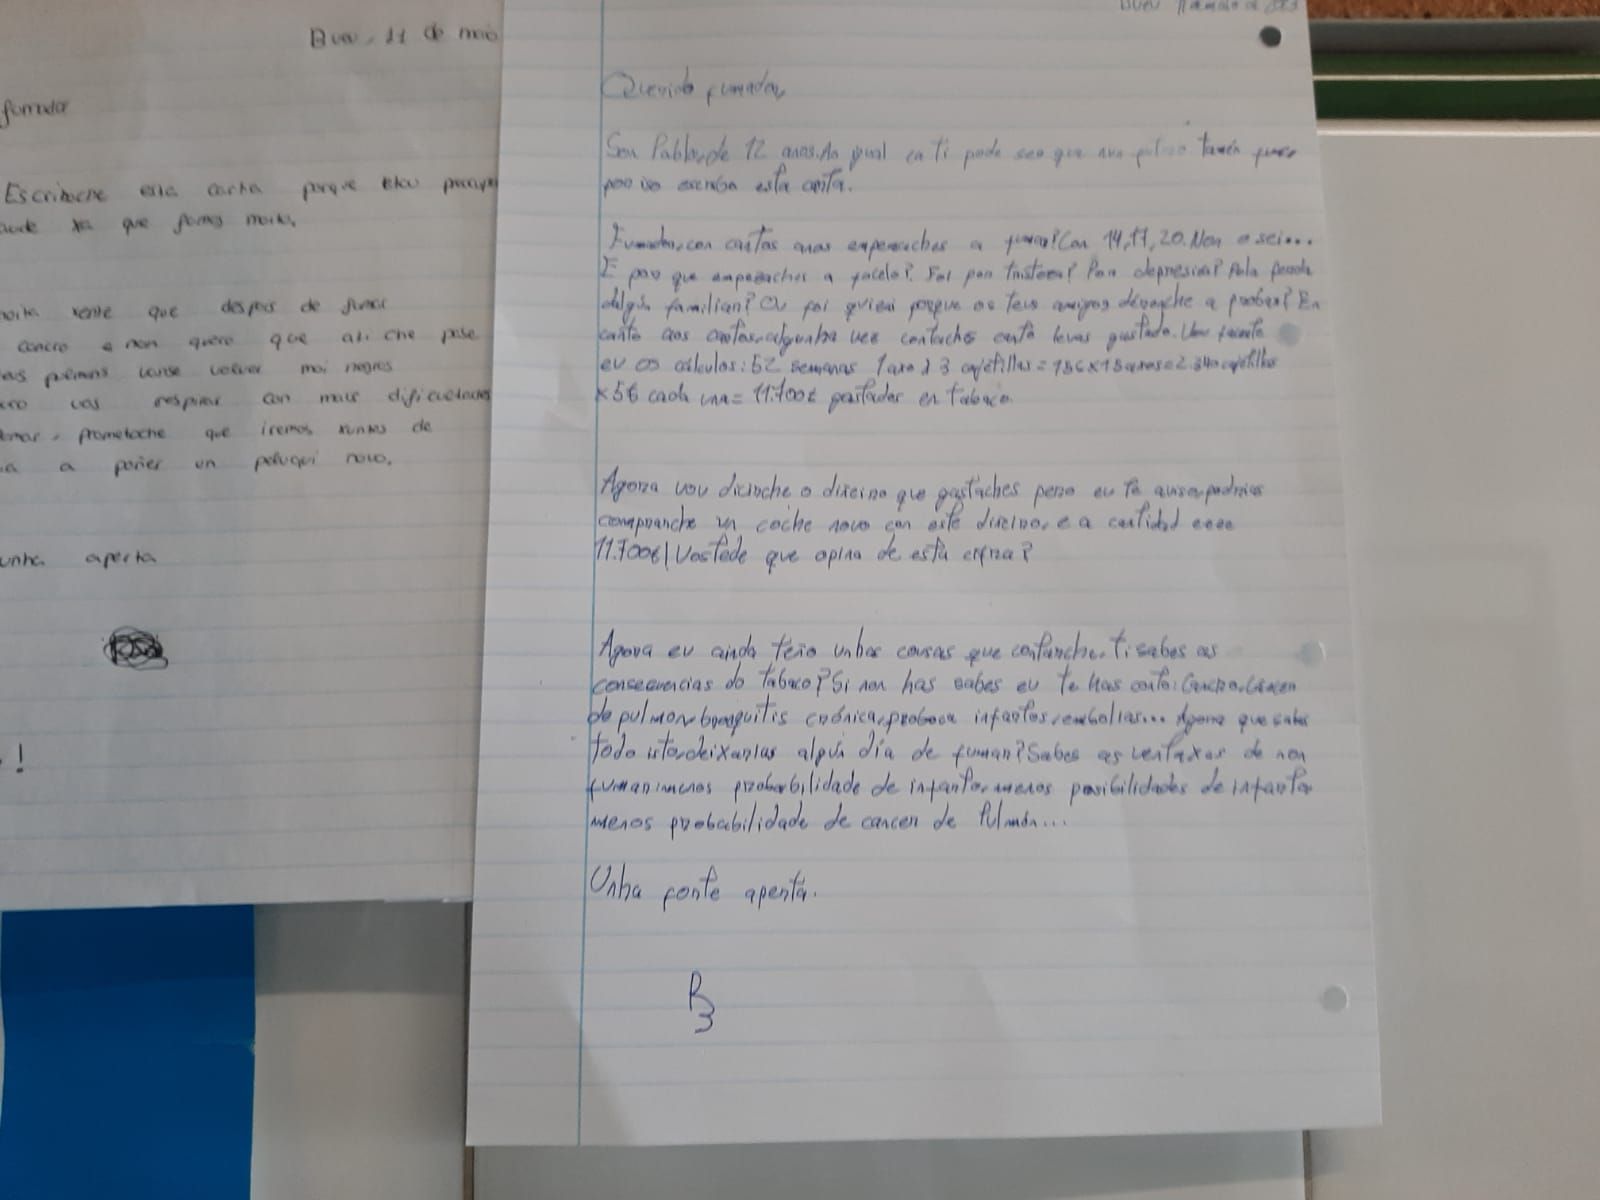 Bueu, 11 de maio
fumador
Escriboche esta carta porque
saude xa que fumas moito.
moita xente que despois de fumar
cancro e non quero que a ti che pase
pulmons vanse volver moi negros
vas respirar con mais dificultades
fumar, prometoche que iremos xuntos de
a poñer un peluquí novo.
unha aperta
!
Bueu
Querido fumador,
Son Pablo, de 12 anos. Ao igual ca ti pode ser que meu tamén fume
por iso escribo esta carta.
Fumador, con cantos anos empezaches a fumar? Con 14, 17, 20. Non o sei...
E por que empezaches a facelo? Foi por tristeza? Por depresión? Pola perda
dalgún familiar? Ou foi quizai porque os teus amigos déronche a probar? En
canto aos cartos, algunha vez contaches canto levas gastado. Vou facerte
eu os cálculos: 52 semanas 1 ano x 3 cajetillas = 156 x 15 anos = 2.340 cajetillas
x 5€ cada una = 11.700€ gastados en tabaco.
Agora vou dicirche o diñeiro que gastaches pero eu te aviso, podrías
comprarche un coche novo con este diñeiro, e a cantidad eeee
11.700€! Vostede que opina de esta cifra?
Agora eu ainda teño unhas cousas que contarche. Ti sabes as
consecuencias do tabaco? Si non has sabes eu te has conto: Cancro, cáncer
de pulmón, bronquitis crónica, proboca infartos, embolias... Agora que sabes
todo isto, deixarías algún día de fumar? Sabes as ventaxas de non
fumar: menos probabilidade de infarto, menos posibilidades de infarto,
menos probabilidade de cancer de Pulmón...
Unha forte aperta.